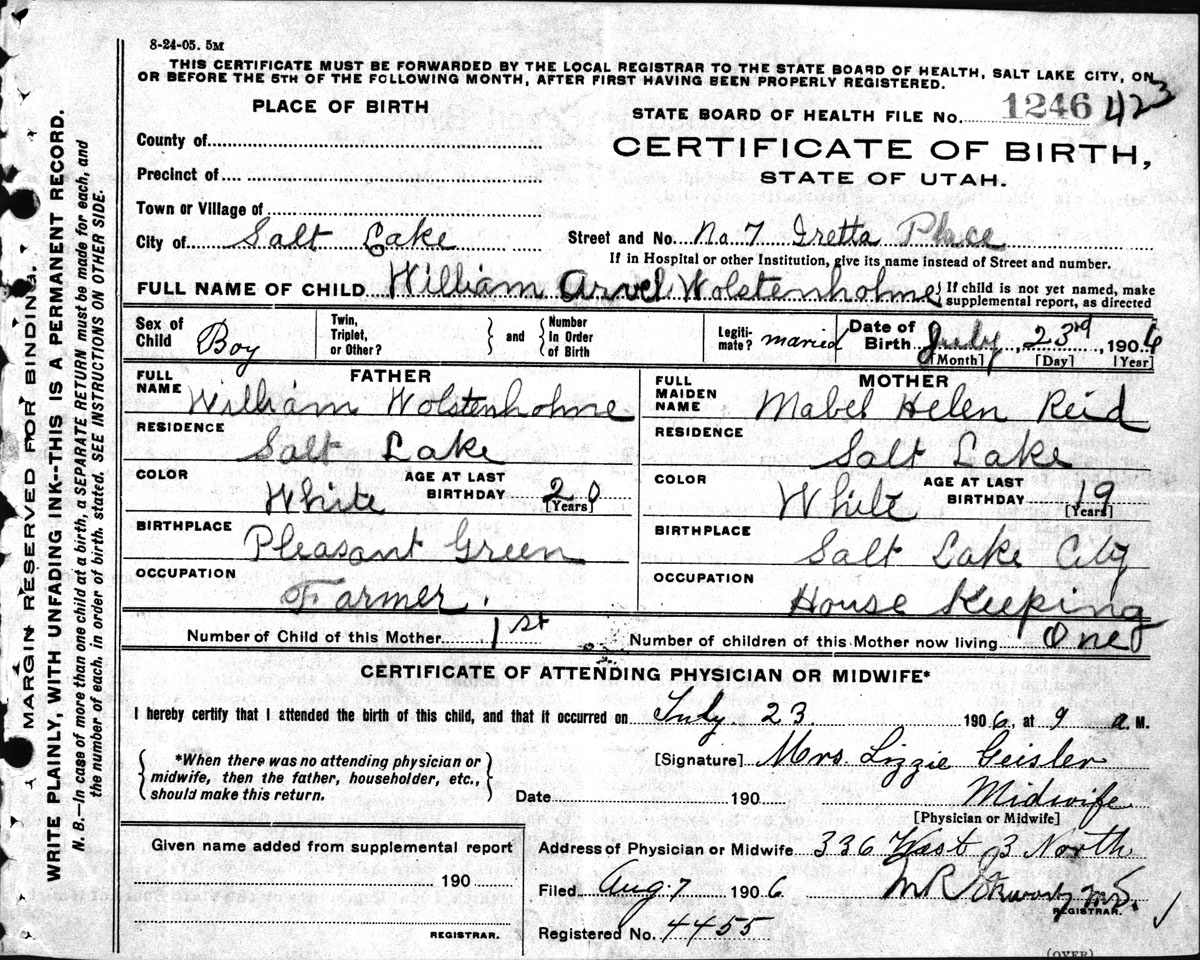 8-24-05. 5M
THIS CERTIFICATE MUST BE FORWARDED BY THE LOCAL REGISTRAR TO THE STATE BOARD OF HEALTH, SALT LAKE CITY, ON
OR BEFORE THE 5TH OF THE FOLLOWING MONTH, AFTER FIRST HAVING BEEN PROPERLY REGISTERED.
PLACE OF BIRTH
STATE BOARD OF HEALTH FILE No. 1246 423
County of
CERTIFICATE OF BIRTH,
Precinct of
STATE OF UTAH.
Town or Village of
City of Salt Lake
Street and No. No. 7 Iretta Place
If in Hospital or other Institution, give its name instead of Street and number.
FULL NAME OF CHILD William Arvel Wolstenholme { If child is not yet named, make
supplemental report, as directed
Sex of
Child Boy
Twin,
Triplet,
or Other?
} and {
Number
In Order
of Birth
Legiti-
mate? married
Date of
Birth July 23rd, 1906
[Month] [Day] [Year]
FATHER
FULL
NAME William Wolstenholme
RESIDENCE
Salt Lake
COLOR
White
AGE AT LAST
BIRTHDAY 20
[Years]
BIRTHPLACE
Pleasant Green
OCCUPATION
Farmer.
MOTHER
FULL
MAIDEN
NAME Mabel Helen Reid
RESIDENCE
Salt Lake
COLOR
White
AGE AT LAST
BIRTHDAY 19
[Years]
BIRTHPLACE
Salt Lake City
OCCUPATION
House Keeping
Number of Child of this Mother 1st
Number of children of this Mother now living One
CERTIFICATE OF ATTENDING PHYSICIAN OR MIDWIFE*
I hereby certify that I attended the birth of this child, and that it occurred on July 23 1906, at 9 a M.
{ *When there was no attending physician or
midwife, then the father, householder, etc.,
should make this return. }
[Signature] Mrs. Lizzie Geisler
Date 190 Midwife
[Physician or Midwife]
Given name added from supplemental report
190
REGISTRAR.
Address of Physician or Midwife 336 West 3 North
Filed Aug. 7 1906 M R
REGISTRAR.
Registered No. 4455
(OVER)
MARGIN RESERVED FOR BINDING.
WRITE PLAINLY, WITH UNFADING INK--THIS IS A PERMANENT RECORD.
N. B.—In case of more than one child at a birth, a SEPARATE RETURN must be made for each, and
the number of each, in order of birth, stated. SEE INSTRUCTIONS ON OTHER SIDE.